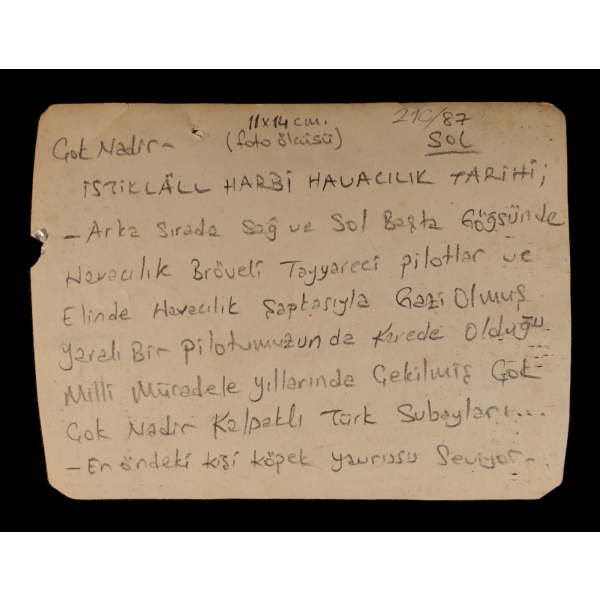 11x14 cm. 210/87
Çok Nadir- (foto ölçüsü) SOL
İSTİKLÂLL HARBİ HAVACILIK TARİHİ;
- Arka Sırada Sağ ve Sol Başta Göğsünde
Havacılık Bröveli Tayyareci pilotlar ve
Elinde Havacılık Şapkasıyla Gazi Olmuş
yaralı Bir pilotumuzunda Karede Olduğu
Milli Mücadele yıllarında Çekilmiş Çok
Çok Nadir Kalpaklı Türk Subayları...
- En öndeki kişi köpek yavrusu Seviyor-